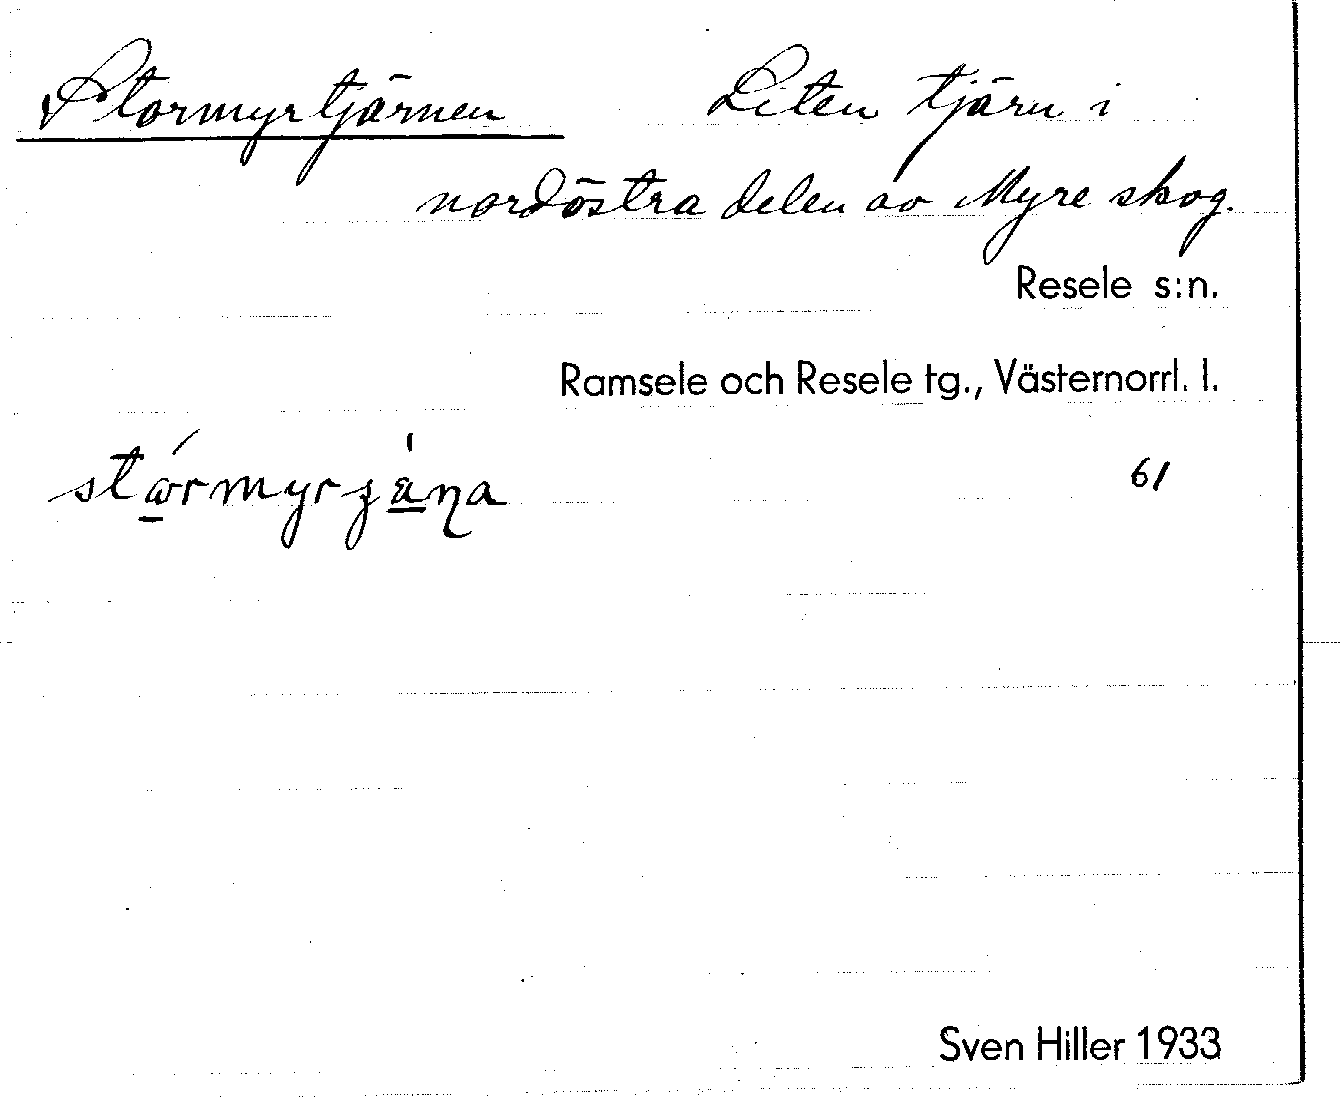 Stormyrtjärnen Liten tjärn i
nordöstra delen av Myre skog.
Resele s:n.
Ramsele och Resele tg., Västernorrl. l.
61
Sven Hiller 1933